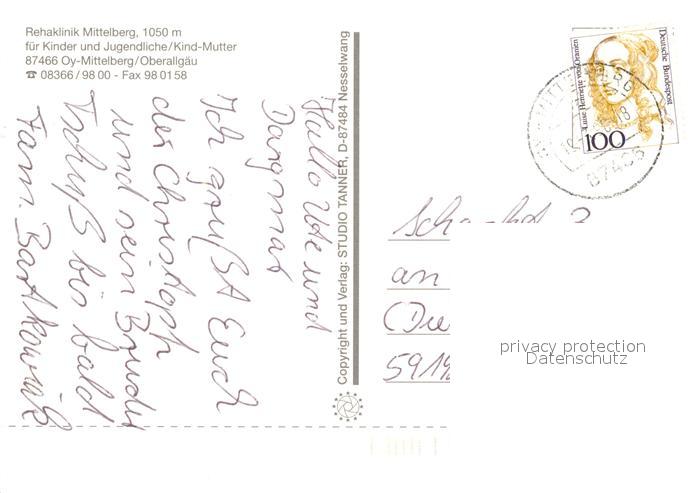 Rehaklinik Mittelberg, 1050 m
für Kinder und Jugendliche/Kind-Mutter
87466 Oy-Mittelberg/Oberallgäu
☎ 08366/98 00 - Fax 98 01 58
Hallo Ute und
Dargmar
Ich grüßt Euch
der Christoph
und sein Bruder
Tschüß bis bald
Fam.
Copyright und Verlag: STUDIO TANNER, D-87484 Nesselwang
Deutsche Bundespost
Luise Henriette von Oranien
100
87466
an
5919
privacy protection
Datenschutz